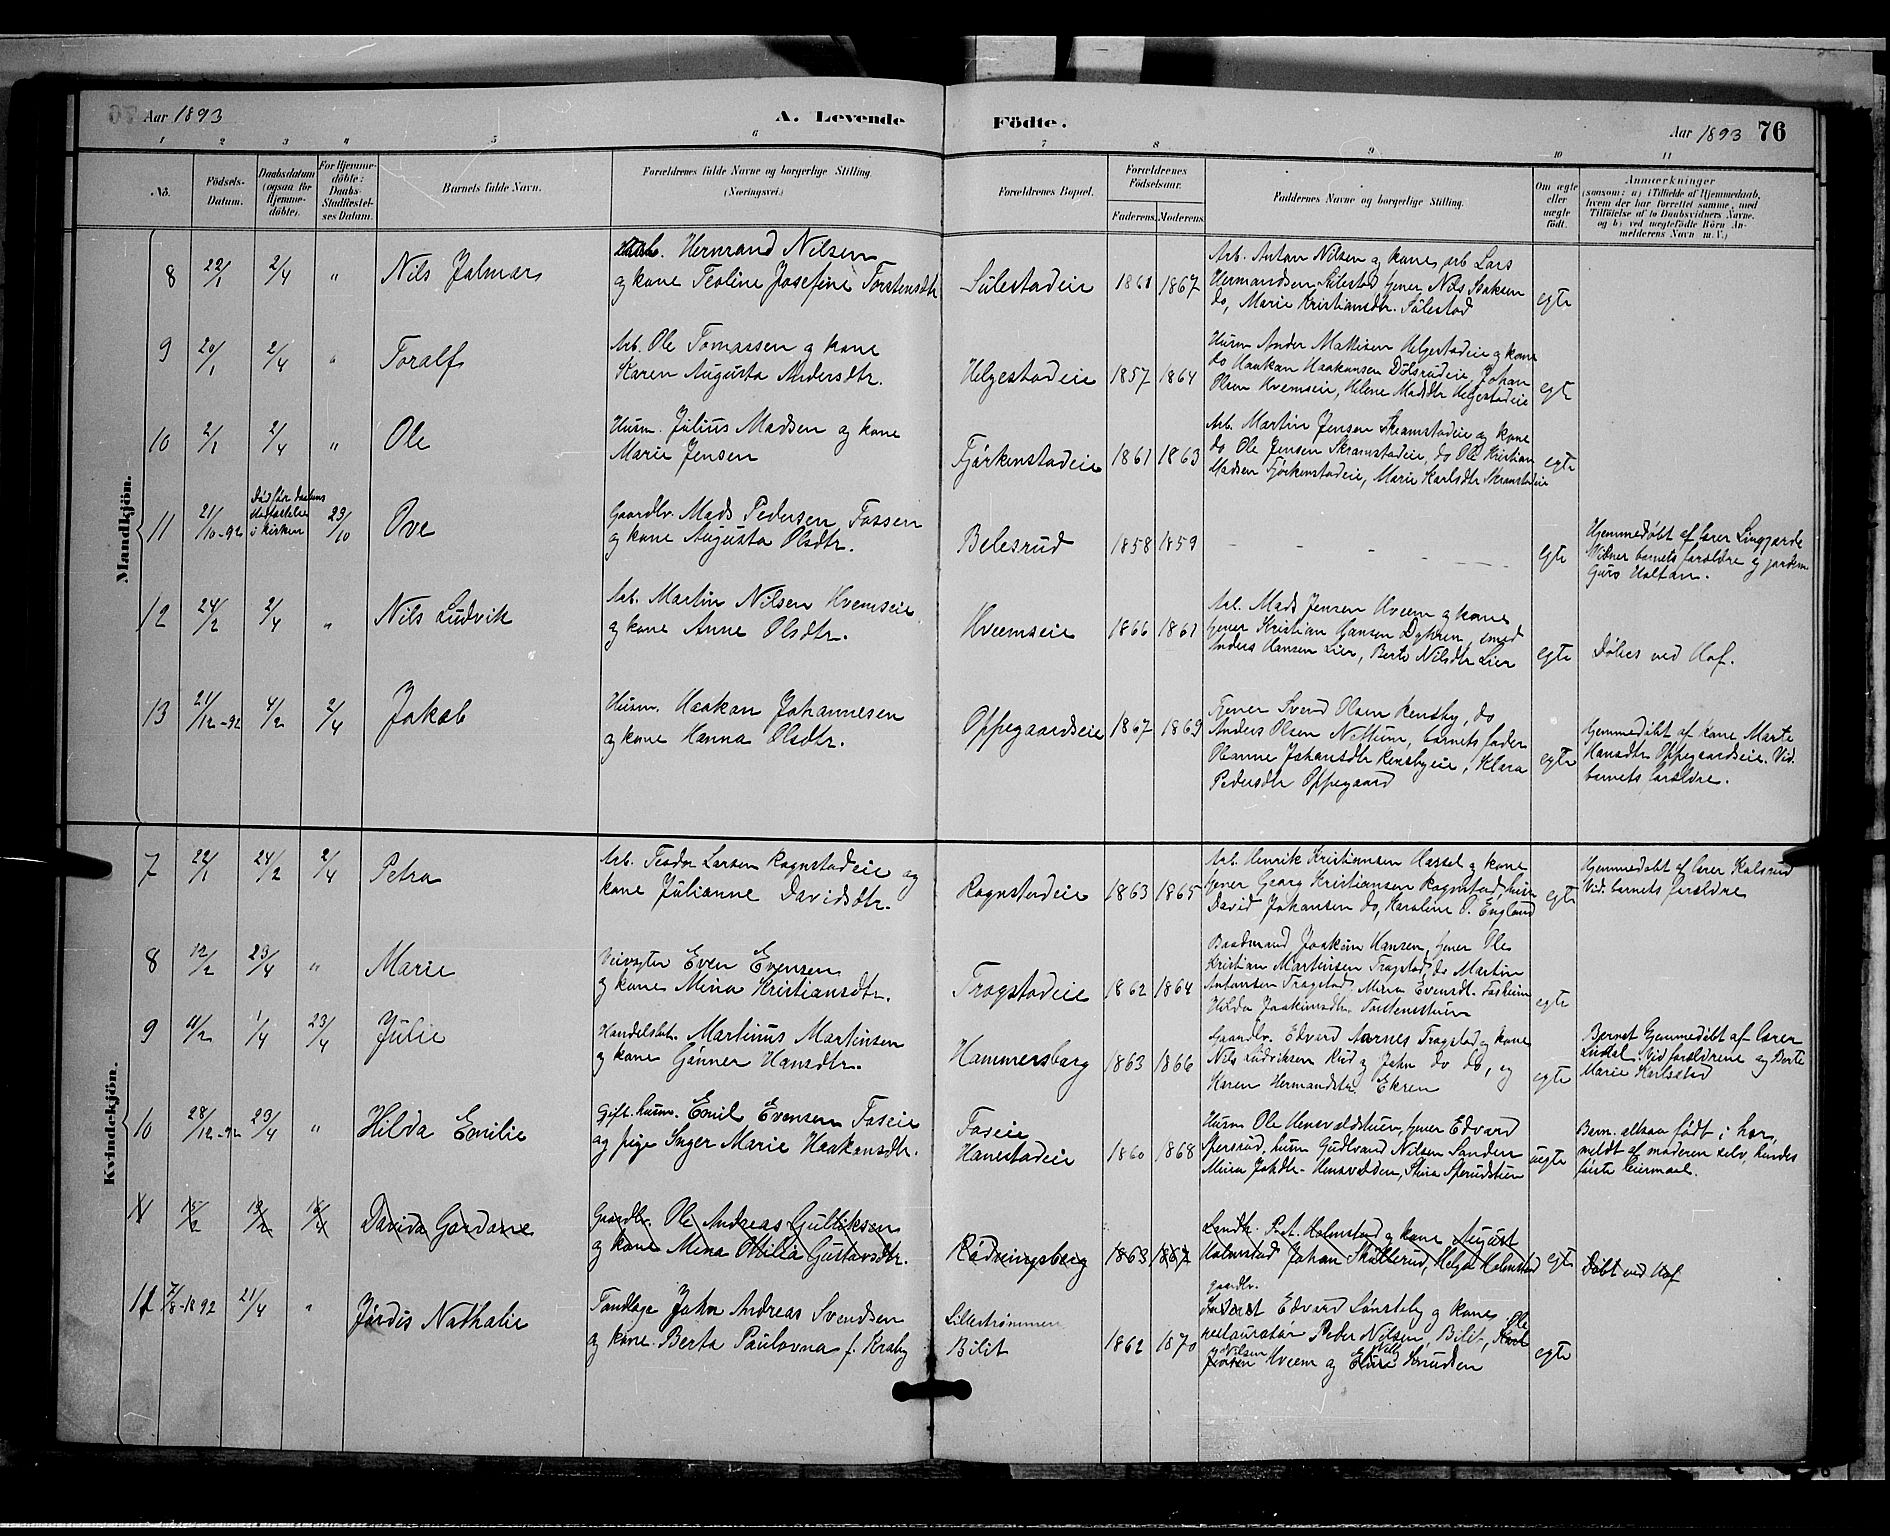 Aar 1893
A. Levende Födte.
Aar 1893 76
1 2 3 4 5 6 7 8 9 10 11
No.
Födsels-Datum.
Daabsdatum (ogsaa for Hjemme-döbte).
For Hjemme-döbte: Daabs-Stadfæstelses Datum.
Barnets fulde Navn.
Forældrenes fulde Navne og borgerlige Stilling (Næringsvei.)
Forældrenes Bopæl.
Forældrenes Födselsaar.
Faderens. Moderens.
Faddernes Navne og borgerlige Stilling.
Om ægte eller uægte födt.
Anmærkninger
(saasom: a) i Tilfælde af Hjemmedaab,
hvem der har forrettet samme, med
Tilföielse af to Daabsvidners Navne.
og b) ved uægtefödte Börn An-
melderens Navn m. V.)
Mandkjön.
8 22/1 2/4 " Nils Jalmar
Hermand Nilsen
og kone Teoline Josefine Torstensdtr
Sulestadeie 1861 1867
Arb. Anton Nilsen og kone, arb Lars
Hermandsen Sulestad tjener Nils Isaksen
do, Marie Kristiansdtr. Sulestad
egte
9 20/1 2/4 " Toralf
Arb. Ole Tomassen og kone
Karen Augusta Andersdtr.
Helgestadeie 1857 1864
Husm Ander Mattisen Helgestadeie og kone
do Haakan Haakansen Dölsrudeie Johan
Olsen Hvemseie, Helene Madsdtr Helgestadeie
egte
10 2/1 2/4 " Ole
Husm. Julius Madsen og kone
Marie Jensen
Fjörkenstadeie 1861 1863
Arb. Martin Jensen Skramstadeie og kone
do Ole Jensen Skramstadeie, do Ole Kristian
Madsen Fjörkenstadeie, Marie Karlsdtr Skramstadeie
egte
11 21/10-92 Död för daabens
stadfæstelse
i kirken 23/10 Ove
Gaardbr. Mads Pedersen Fossen
og kone Augusta Olsdtr.
Belesrud 1858 1859
egte
Hjemmedöbt af lærer Lingjærde
Vidner barnets forældre og jordem
Guro Holtan.
12 24/2 2/4 " Nils Ludvik
Arb. Martin Nilsen Hvemseie
og kone Anne Olsdtr.
Hveemseie 1866 1861
Arb. Mads Jensen Hveem og kone
tjener Kristian Hansen Dyhren, smed
Anders Hansen Lier, Berte Nilsdtr Lier
egte
Döbes ved Hof.
13 21/12-92 4/2 2/4 Jakob
Husm. Haakan Johannesen
og kone Hanna Olsdtr.
Oppegaardseie 1867 1869
Tjener Svend Olsen Rensby, do
Anders Olsen Nettum, barnets fader
Oleanne Johansdtr Rensbyeie, Klara
Pedersdtr Oppegaard
egte
Hjemmedöbt af kone Marte
Hansdtr Oppegaardseie. Vid.
barnets forældre.
Kvindekjön.
7 22/1 24/2 2/4 Petra
Arb. Teodor Larsen Rognstadeie og
kone Julianne Davidsdtr.
Rognstadeie 1863 1865
Arb. Henrik Kristiansen Hassel og kone
tjener Georg Kristiansen Rognstad, husm
David Johansen do, Karoline O. England
egte
Hjemmedöbt af lærer Kalsrud
Vid. barnets forældre
8 12/2 23/4 " Marie
Veivogter Even Evensen
og kone Mina Kristiansdtr.
Trogstadeie 1862 1864
Baadmand Joakim Hansen, tjener Ole
Kristian Martinsen Trogstad, do Martin
Antonsen Trogstad, Mina Evensdt. Fasheim
Hilda Joakimsdtr.
egte
9 11/2 1/4 23/4 Julie
Handelsbet. Martinus Martinsen
og kone Gönner Hansdtr.
Hammersberg 1863 1866
Gaardbr. Edvard Aarnes Trogstad og kone
Nils Ludviksen Rud og John do do, og
Karen Hermandsdtr Ekren
egte
Barnet hjemmedöbt af lærer
Lindal. Vid forældrene og Berte
Marie Karlsstad
10 28/12-92 23/4 " Hilda Emilie
Gift. husm. Emil Evensen Foseie
og pige Inger Marie Haakonsdtr.
Foseie
Hanestadeie 1860 1868
Husm Ole Henevoldstuen, tjener Edvard
Spersrud, husm Gudbrand Nilsen Sanden
Mina Johdtr. Hensvolden, Stina Sperudstuen
uegte
Barn. altsaa födt i hor,
meldt af moderen selv, hendes
förste leiermaal.
11 Davida Gordane
Gaardbr. Ole Andreas Gulliksen
og kone Mina Ottilia Gustavsdtr.
Rödningsberg 1863 1867
Landh. P. A. Holmstad og kone August
Holmstad Johan Skullerud, Helga Holmstad
egte
Döbt ved Hof
11 7/8-1892 21/4 " Jördis Nathalie
Tandlæge John Andreas Svendsen
og kone Berta Paulovna f. Kraby
Lillestrømmen
Bilit 1862 1870
gaardbr.
Edvard Lönsteby og kone, Ole
restauratör Peder Nilsen, Bilit,
Nilsen Hveem og Knudsen
egte